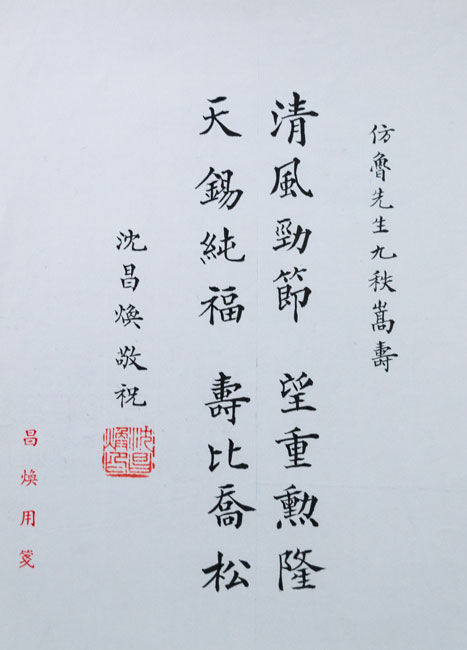 仿魯先生九秩嵩壽
清風勁節 望重勲隆
天錫純福 壽比喬松
沈昌煥敬祝
沈昌煥印
昌煥用箋